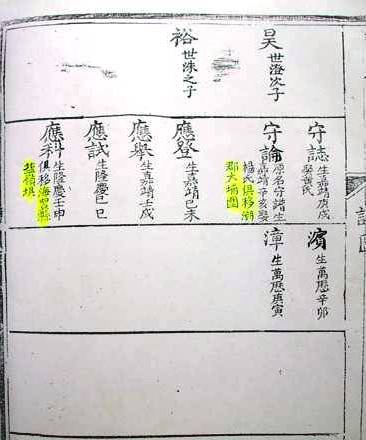 昊 世澄次子
裕 世洙之子
守誌 生嘉靖庚戌
守論 原名守譜生
嘉靖辛亥娶
楊氏俱移潮
郡大埔
應登 生嘉靖己未
應舉 生嘉靖壬戌
應試 生隆慶己巳
應科 生隆慶壬申
俱移海豐縣
嶺
濱 生萬曆辛卯
漳 生萬曆庚寅